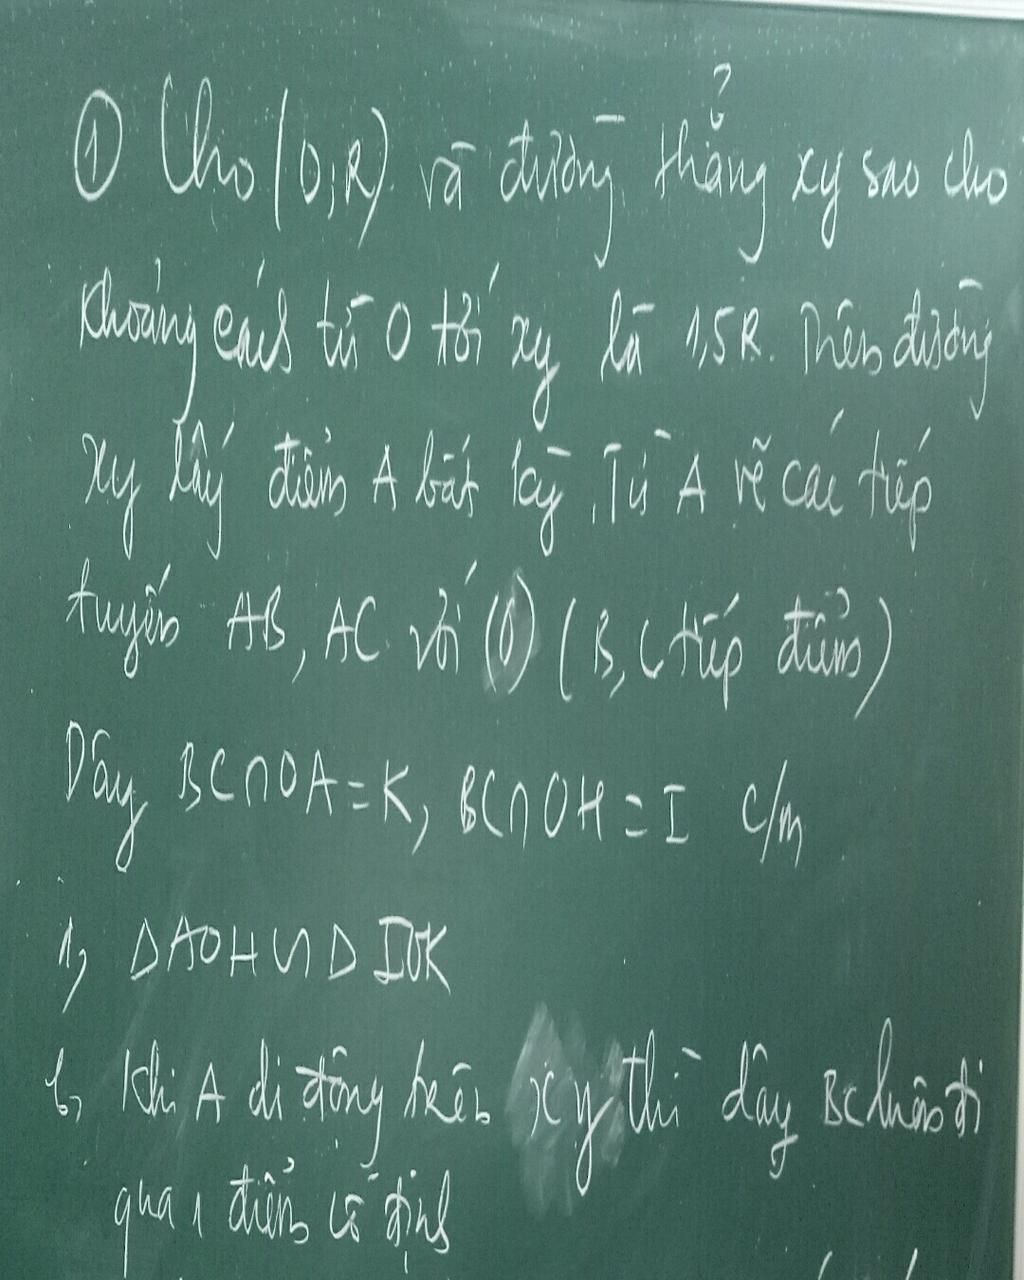 ① Cho (O;R) và đường thẳng xy sao cho
khoảng cách từ O tới xy là 1,5R. Trên đường
xy lấy điểm A bất kỳ. Từ A vẽ các tiếp
tuyến AB, AC với (O) (B, C tiếp điểm)
Dây BC∩OA=K, BC∩OH=I c/m
1, ΔAOH ∽ Δ IOK
b, Khi A di động trên xy thì dây BC luôn đi
qua 1 điểm cố định